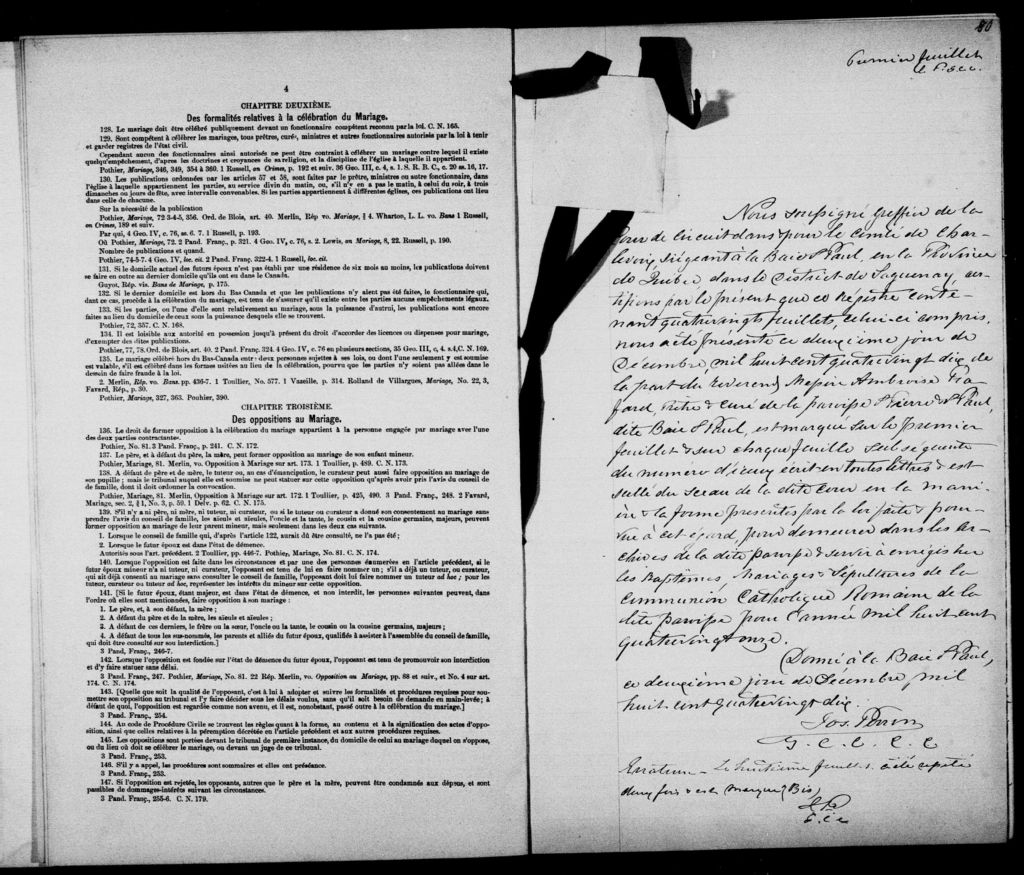 4
CHAPITRE DEUXIÈME.
Des formalités relatives à la célébration du Mariage.
128. Le mariage doit être célébré publiquement devant un fonctionnaire compétent reconnu par la loi. C. N. 165.
129. Sont compétents à célébrer les mariages, tous prêtres, curés, ministres et autres fonctionnaires autorisés par la loi à tenir
et garder registres de l'état civil.
Cependant aucun des fonctionnaires ainsi autorisés ne peut être contraint à célébrer un mariage contre lequel il existe
quelqu'empêchement, d'après les doctrines et croyances de sa religion, et la discipline de l'église à laquelle il appartient.
Pothier, Mariage, 346, 349, 354 à 360. 1 Russell, on Crimes, p. 192 et suiv. 36 Geo. III, c. 4, s. 1. S. R. B. C., c. 20 ss. 16, 17.
130. Les publications ordonnées par les articles 57 et 58, sont faites par le prêtre, ministre ou autre fonctionnaire, dans
l'église à laquelle appartiennent les parties, au service divin du matin, ou, s'il n'y en a pas le matin, à celui du soir, à trois
dimanches ou jours de fête, avec intervalle convenables. Si les parties appartiennent à différentes églises, ces publications ont lieu
dans celle de chacune.
Sur la nécessité de la publication
Pothier, Mariage, 72 3-4-5, 356. Ord. de Blois, art. 40. Merlin, Rép vo. Mariage, § 4. Wharton, L. L. vo. Bans 1 Russell,
on Crimes, 189 et suiv.
Par qui, 4 Geo. IV, c. 76, ss. 6. 7. 1 Russell, p. 193.
Où Pothier, Mariage, 72. 2 Pand. Franç., p. 321. 4 Geo. IV, c. 76, s. 2. Lewis, on Mariage, 8, 22. Russell, p. 190.
Nombre de publications et quand.
Pothier, 74-5-7. 4 Geo. IV, loc. cit. 2 Pand. Franç. 322-4. 1 Russell, loc. cit.
131. Si le domicile actuel des futurs époux n'est pas établi par une résidence de six mois au moins, les publications doivent
se faire en outre au dernier domicile qu'ils ont eu dans le Canada.
Guyot, Rép. vis. Bans de Mariage, p. 175.
132. Si le dernier domicile est hors du Bas Canada et que les publications n'y aient pas été faites, le fonctionnaire qui,
dans ce cas, procède à la célébration du mariage, est tenu de s'assurer qu'il existe entre les parties aucuns empêchements légaux.
133. Si les parties, ou l'une d'elle sont relativement au mariage, sous la puissance d'autrui, les publications sont encore
faites au lieu du domicile de ceux sous la puissance desquels elle se trouvent.
Pothier, 72, 357. C. N. 168.
134. Il est loisible aux autorité en possession jusqu'à présent du droit d'accorder des licences ou dispenses pour mariage,
d'exempter des dites publications.
Pothier, 77, 78. Ord. de Blois, art. 40. 2 Pand. Franç. 324. 4 Geo. IV, c. 76 en plusieurs sections, 35 Geo. III, c, 4. s.4,C. N. 169.
135. Le mariage célébré hors du Bas-Canada entre deux personnes sujettes à ses lois, ou dont l'une seulement y est soumise
est valable, s'il est célébré dans les formes usitées au lieu de la célébration, pourvu que les parties n'y soient pas allées dans le
dessein de faire fraude à la loi.
2. Merlin, Rép. vo. Bans. pp. 436-7. 1 Toullier, No. 577. 1 Vazeille, p. 314. Rolland de Villargues, Mariage, No. 22, 3,
Favard, Rép., p. 30.
Pothier, Mariage, 327, 363. Pouhier, 390.
CHAPITRE TROISIÈME.
Des oppositions au Mariage.
136. Le droit de former opposition à la célébration du mariage appartient à la personne engagée par mariage avec l'une
des deux parties contractantes.
Pothier, No. 81. 3 Pand. Franç., p. 241. C. N. 172.
137. Le père, et à défaut du père, la mère, peut former opposition au mariage de son enfant mineur.
Pothier, Mariage, 81. Merlin, vo. Opposition à Mariage sur art. 173. 1 Toullier, p. 489. C. N. 173.
138. A défaut de père et de mère, le tuteur ou, au cas d'émancipation, le curateur peut aussi faire opposition au mariage de
son pupille; mais le tribunal auquel elle est soumise ne peut statuer sur cette opposition qu'après avoir pris l'avis du conseil de
famille, dont il doit ordonner la convocation.
Pothier, Mariage, 81. Merlin, Opposition à Mariage sur art. 172. 1 Toullier, p. 425, 490. 3 Pand. Franç., 248. 2 Favard,
Mariage, sec. 2, § 1, No. 3, p. 59. 1 Delv. p. 62. C. N. 175.
139. S'il n'y a ni père, ni mère, ni tuteur, ni curateur, ou si le tuteur ou curateur a donné son consentement au mariage sans
prendre l'avis du conseil de famille, les aïeuls et aïeules, l'oncle et la tante, le cousin et la cousine germains, majeurs, peuvent
former opposition au mariage de leur parent mineur, mais seulement dans les deux cas suivants.
1. Lorsque le conseil de famille qui, d'après l'article 122, aurait dû être consulté, ne l'a pas été;
2. Lorsque le futur époux est dans l'état de démence.
Autorités sous l'art. précédent. 2 Toullier, pp. 446-7. Pothier, Mariage, No. 81. C. N. 174.
140. Lorsque l'opposition est faite dans les circonstances et par une des personnes énumérées en l'article précédent, si le
futur époux mineur n'a ni tuteur, ni curateur, l'opposant est tenu de lui en faire nommer un; s'il a déjà un tuteur, ou curateur,
qui ait déjà consenti au mariage sans consulter le conseil de famille, l'opposant doit lui faire nommer un tuteur ad hoc; pour les
tuteur, curateur ou tuteur ad hoc, représenter les intérêts du mineur sur cette opposition.
141. [Si le futur époux, étant majeur, est dans l'état de démence, et non interdit, les personnes suivantes peuvent, dans
l'ordre où elles sont mentionnées, faire opposition à son mariage:
1. Le père, et, à son défaut, la mère;
2. A défaut du père et de la mère, les aïeuls et aïeules;
3. A défaut de ces derniers, le frère ou la sœur, l'oncle ou la tante, le cousin ou la cousine germains, majeurs;
4. A défaut de tous les sus-nommés, les parents et alliés du futur époux, qualifiés à assister à l'assemblée du conseil de famille,
qui doit être consulté sur sou interdiction.]
3 Pand. Franç., 246-7.
142. Lorsque l'opposition est fondée sur l'état de démence du futur époux, l'opposant est tenu de promouvoir son interdiction
et d'y faire statuer sans délai.
3 Pand. Franç., 247. Pothier, Mariage, No. 81. 22 Rép Merlin, vo. Opposition au Mariage, pp. 88 et suiv., et No. 4 sur art.
174. C. N. 174.
143. [Quelle que soit la qualité de l'opposant, c'est à lui à adopter et suivre les formalités et procédures requises pour sou-
mettre son opposition au tribunal et l'y faire décider sous les délais voulus, sans qu'il soit besoin de demande en main-levée; à
défaut de quoi, l'opposition est regardée comme non avenu, et il est, nonobstant, passé outre à la célébration du mariage.]
3 Pand. Franç., 254.
144. Au code de Procédure Civile se trouvent les règles quant à la forme, au contenu et à la signification des actes d'oppo-
sition, ainsi que celles relatives à la péremption décrétée en l'article précédent et aux autres procédures requises.
145. Les oppositions sont portées devant le tribunal de première instance, du domicile de celui au mariage duquel on s'oppose,
ou du lieu où doit se célébrer le mariage, ou devant un juge de ce tribunal.
3 Pand. Franç., 253.
146. S'il y a appel, les procédures sont sommaires et elles ont préséance.
3 Pand. Franç., 253.
147. Si l'opposition est rejetée, les opposants, autres que le père et la mère, peuvent être condamnés aux dépens, et sont
passibles de dommages-intérêts suivant les circonstances.
3 Pand. Franç., 255-6. C. N. 179.
80
feuillet
Nous soussigné greffier de la
Cour de Circuit dans & pour le comté de Char-
levoix, siégeant à la Baie St Paul, en la Province
de Québec, dans le District de Saguenay, cer-
tifions par le présent que ce Régistre conte-
nant quatrevingts feuillets, celui-ci compris,
nous a été présenté ce deuxième jour de
Décembre, mil huit cent quatrevingt dix
de la part du Révérend Messire Ambroise Fa-
fard, Prêtre & curé de la paroisse St Pierre & St Paul,
dite Baie St Paul, est marqué sur le premier
feuillet & sur chaque feuille subséquente
du numéro d'iceux écrit en toutes lettres & est
scellé du sceau de la dite cour en la mani-
ère & la forme prescrites par la loi faite & pour-
vue à cet égard, pour demeurer dans les ar-
chives de la dite paroisse & servir à enrégistrer
les Baptêmes, Mariages & Sépultures de la
Communion Catholique Romaine de la
dite paroisse pour l'année mil huit cent
quatrevingt onze.
Donné à la Baie St Paul,
ce deuxième jour de Décembre, mil
huit cent quatrevingt dix.
Jos. Perron
G. C. C. C. C
Erratum — Le huitième feuillet a été répété
deux fois & est marqué (Bis)